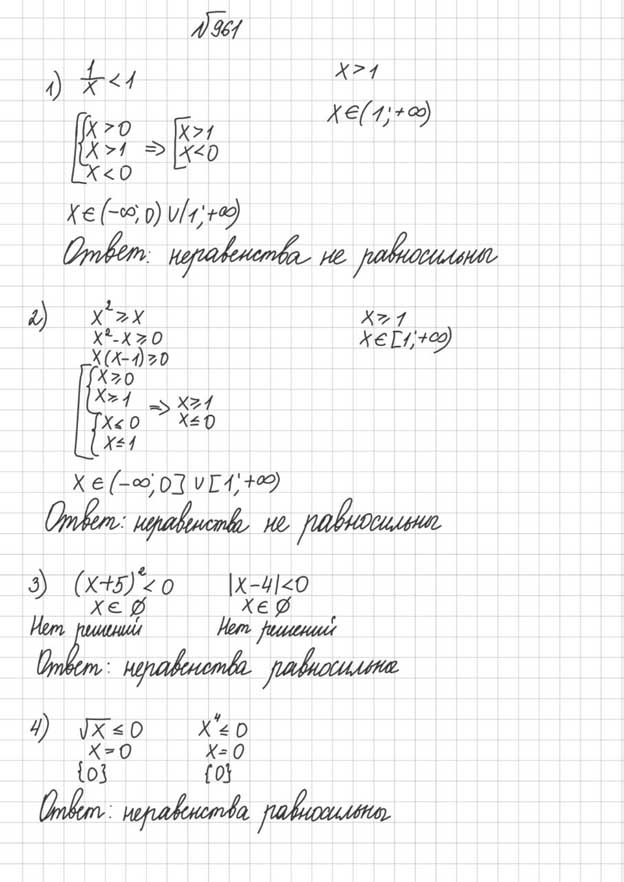 №961
1) 1/x < 1 x > 1
x ∈ (1; +∞)
[{x > 0 x > 1 x < 0 => [x > 1 x < 0
x ∈ (-∞; 0) ∪ (1; +∞)
Ответ: неравенства не равносильны
2) x² ≥ x x ≥ 1
x² - x ≥ 0 x ∈ [1; +∞)
x(x-1) ≥ 0
[{x ≥ 0 x ≥ 1 {x ≤ 0 x ≤ 1 => x ≥ 1 x ≤ 0
x ∈ (-∞; 0] ∪ [1; +∞)
Ответ: неравенства не равносильны
3) (x+5)² < 0 |x-4| < 0
x ∈ ∅ x ∈ ∅
Нет решений Нет решений
Ответ: неравенства равносильна
4) √x ≤ 0 x⁴ ≤ 0
x = 0 x = 0
{0} {0}
Ответ: неравенства равносильны